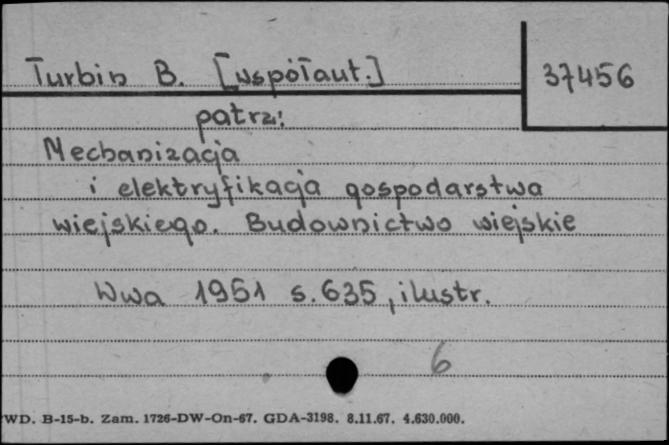 Turbin B. [współaut.] 37456
patrz:
Mechanizacja
i elektryfikacja gospodarstwa
wiejskiego. Budownictwo wiejskie
Wwa 1951 s. 635, ilustr.
6
WD. B-15-b. Zam. 1726-DW-On-67. GDA-3198. 8.11.67. 4.630.000.